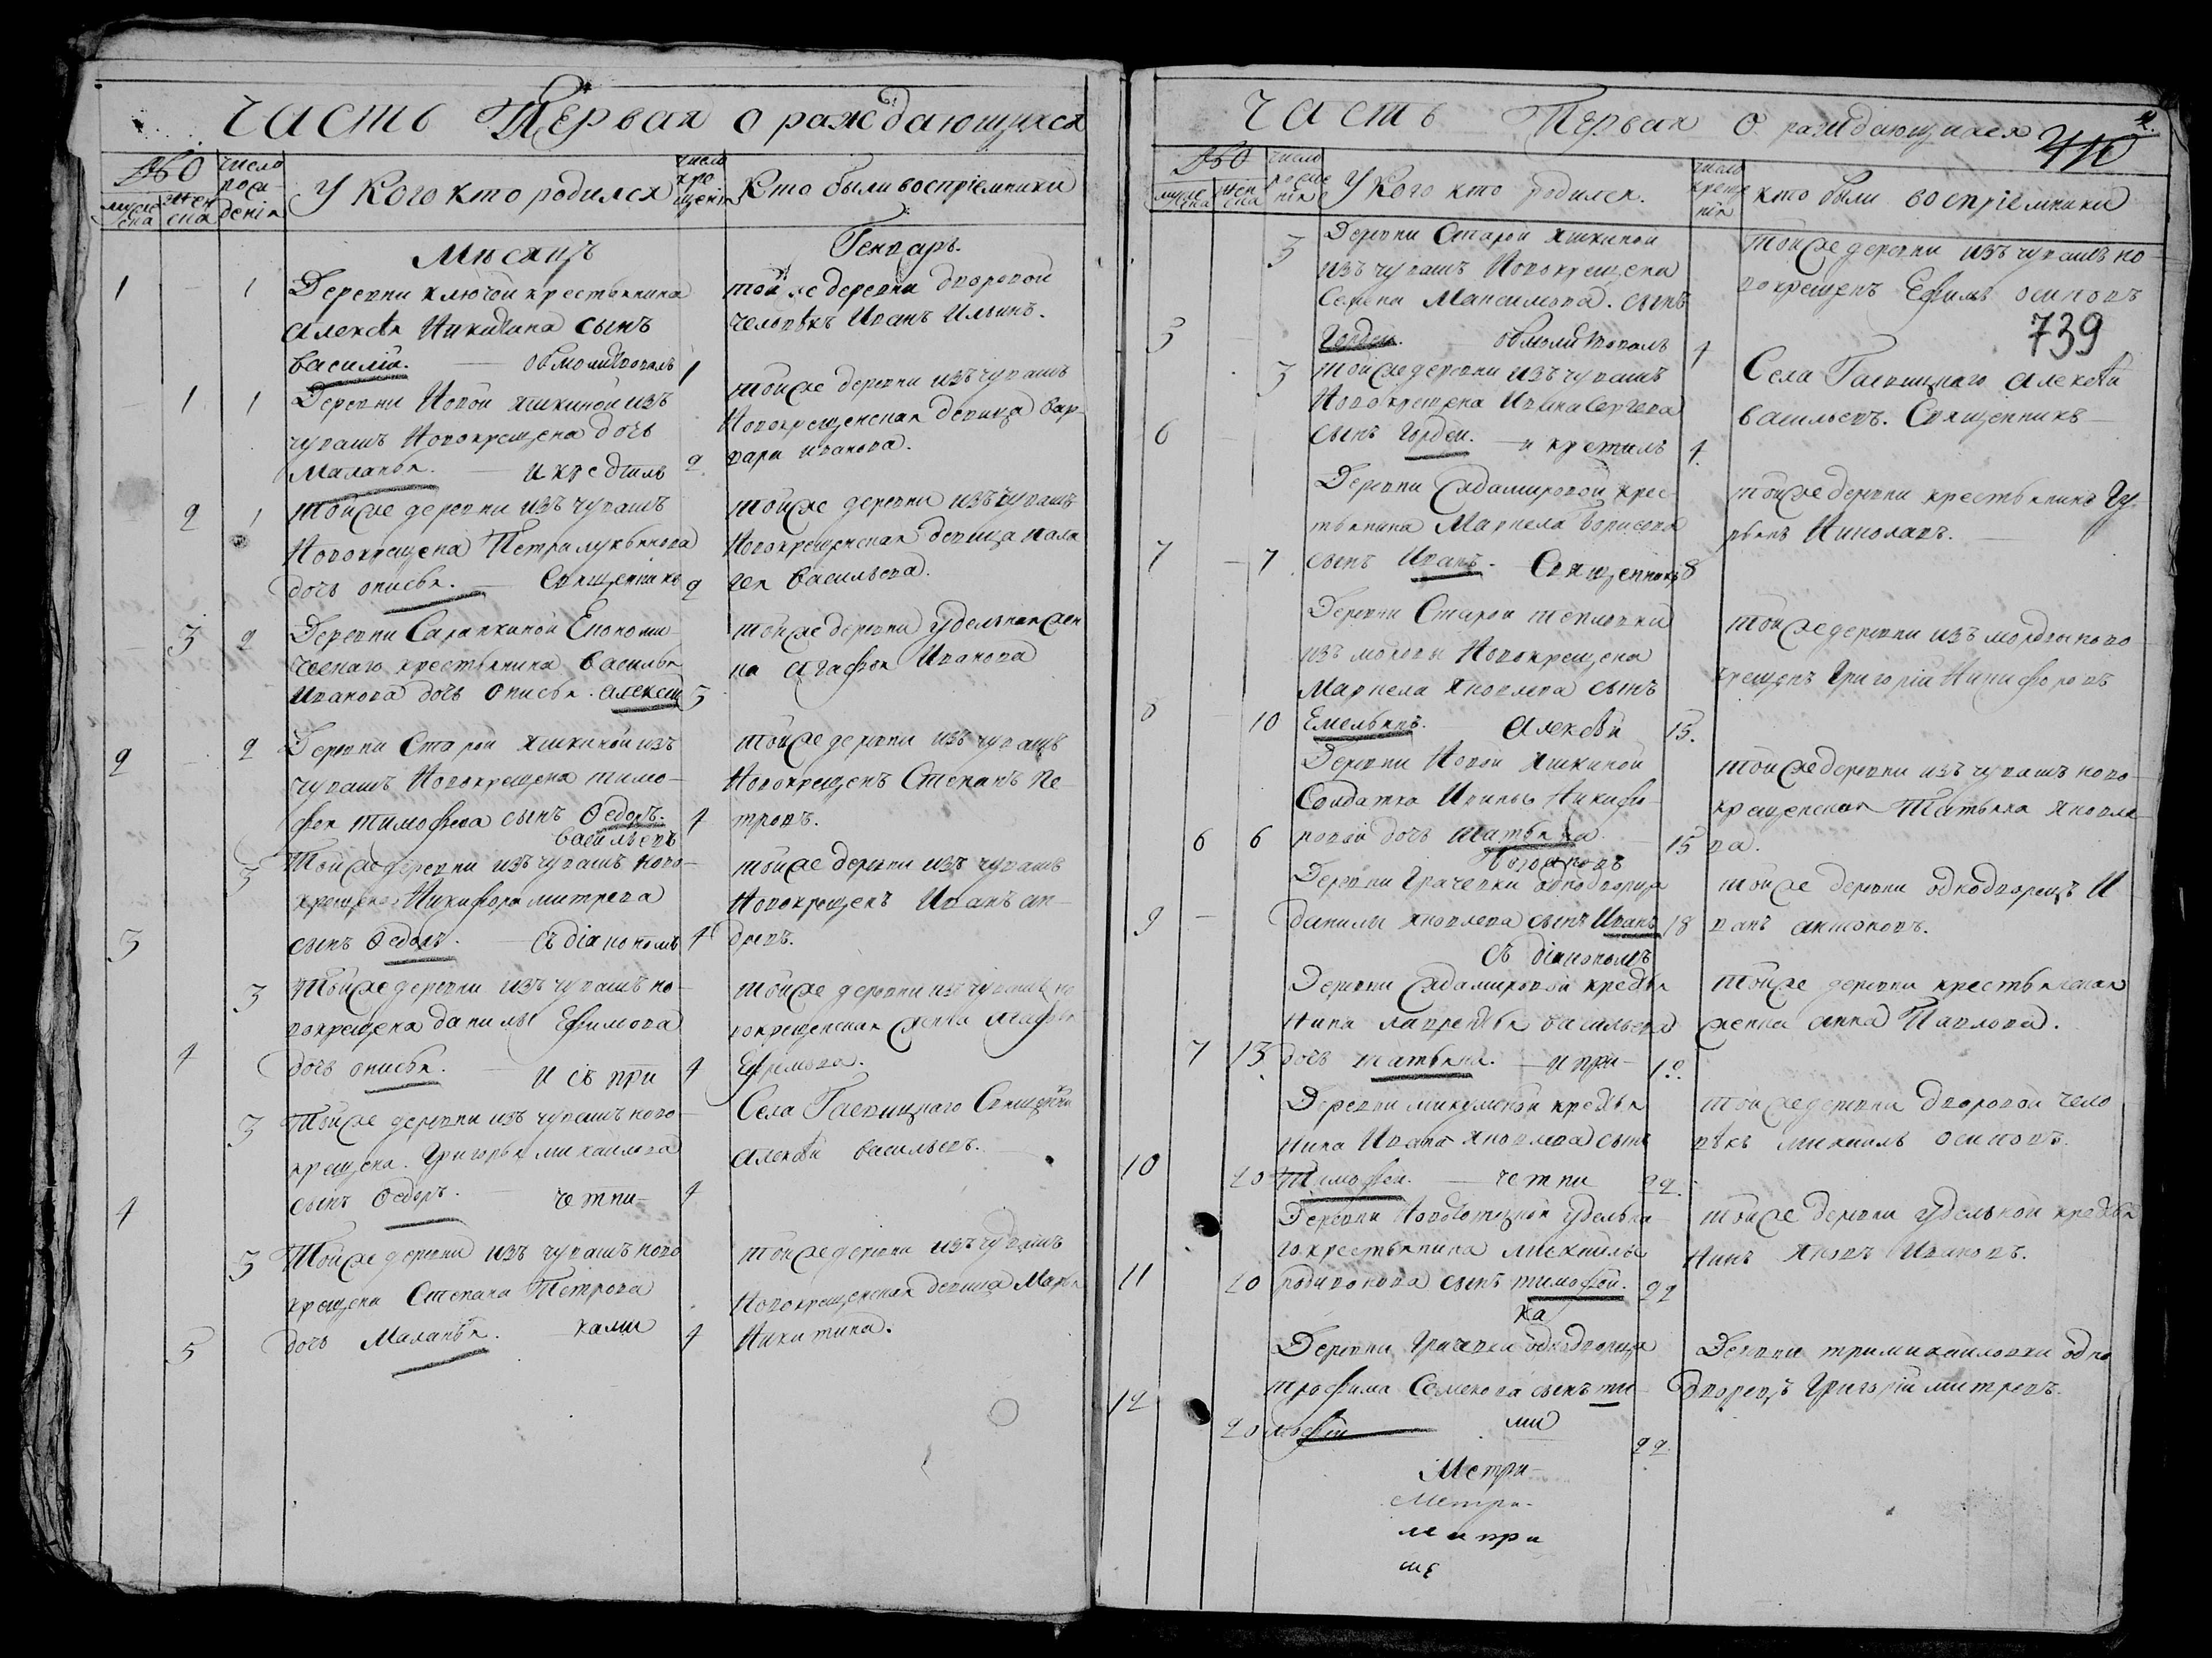 часть Первая о раждающихся
№
число рождения
У Кого кто родился
число крещенія
Кто были воспріемники
муже ска
жен ска
Мѣсяцъ
Генварь.
1 1
Деревни Ключой крестьянина
Алексѣя Никитина сынъ
василій. — обмолитвовалъ 1
той же деревни дворовой
человѣкъ Иванъ Ильинъ.
1 1
Деревни Новой Яшкиной изъ
чувашъ Новокрещена дочь
Маланья. — и крестилъ 2
той же деревни изъ чувашъ
Новокрещенская девица вар-
вара иванова.
2 1
той же деревни изъ чувашъ
Новокрещена Петра лукьянова
дочь онисья. — Священникъ 2
той же деревни изъ чувашъ
Новокрещенская девица пала
гея васильева.
3 2
Деревни Саранкиной Економи-
ческаго крестьянина василья
Иванова дочь онисья. алексѣй 3
той же деревни удельная жен
на агафья Иванова
2 2
Деревни Старой Яшкиной изъ
чувашъ Новокрещена тимо-
фея тимофеева сынъ Ѳедоръ. 4
васильевъ
той же деревни изъ чувашъ
Новокрещенъ Степанъ Пе-
тровъ.
3
Той же деревни изъ чувашъ ново-
крещена Никифора митрева
3 сынъ Ѳедоръ. — съ діакономъ 4
той же деревни изъ чувашъ
Новокрещенъ Иванъ ан-
дреевъ.
3
Той же деревни изъ чувашъ но-
вокрещена данилы Ефимова
4 дочь онисья. — и съ при 4
той же деревни изъ чувашъ но
вокрещенская женка агафья
Ефремова.
3
Той же деревни изъ чувашъ ново-
крещена. Григорья михайлова
4 сынъ Ѳедоръ. — четни- 4
Села Гаевицкаго Священникъ
алексѣй васильевъ.
3
Той же деревни изъ чувашъ ново
крещена Степана Петрова
5 дочь Маланья. ками 4
той же деревни изъ чувашъ
Новокрещенская девица Марья
Никитина.
часть Первая о раждающихся
2.
410
№
число рожде нія
У Кого кто родился.
число креще нія
кто были воспріемники
муже ска
жен ска
3
Деревни Старой Яшкиной
изъ чувашъ Новокрещена
Семена Максимова. сынъ
5 Гордей. обмолитвовалъ 4
той же деревни изъ чувашъ но-
вокрещенъ Ефимъ осиповъ
739
3
той же деревни изъ чувашъ
Новокрещена Ивана Сергеева
6 сынъ Гордей. — и крестилъ 4.
Села Гаевицкаго алексѣй
васильевъ. Священникъ —
Деревни Садамировой крес-
тьянина Маркела Борисова
7 7 сынъ Иванъ. — Священникъ 8
той же деревни крестьянинъ Гу-
рьянъ Николаевъ.
Деревни Старой тепловки
изъ мордвы Новокрещена
Маркела Яковлева сынъ
8 10 Емельянъ. — алексѣй 13.
той же деревни изъ мордвы ново-
крещенъ Григорій Никифоровъ
Деревни Новой Яшкиной
Солдатка Ирины Никифо-
6 6 ровой дочь татьяна. — 15
той же деревни изъ чувашъ ново-
крещенская Татьяна Яковле-
ва.
Деревни Грачевки однодворца
9 данилы Яковлева сынъ Иванъ 18
съ діакономъ
той же деревни однодворецъ И
ванъ
Деревни Садамировой крестья
нина лаврентья васильева
7 13 дочь татьяна. — и при-
той же деревни крестьянская
женка анна Павлова.
Деревни микулиной крестья
нина Ивана Яковлева сынъ
10 20 Тимофей. — четни 22.
той же деревни дворовой чело
вѣкъ михаилъ осиповъ.
Деревни удельна-
го крестьянина михайлы
11 20 родионова сынъ тимофей. 22
ка
той же деревни удельной крестья
нинъ Яковъ Ивановъ.
Деревни Грачевки однодворца
12 трофима Семенова сынъ ти-
20 мофей ми 22.
Деревни тримихайловки одно
дворецъ Григорій митревъ.
Метри-
Метри-